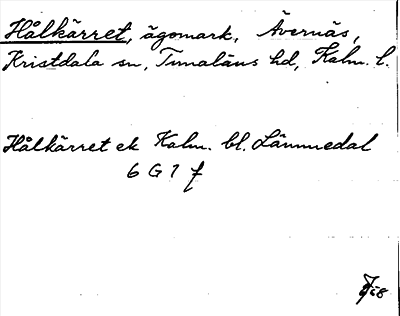 Hålkärret, ägomark, Ävernäs,
Kristdala sn, Tunaläns hd, Kalm. l.
Hålkärret ek Kalm. bl. Lämmedal
6 G 7 f